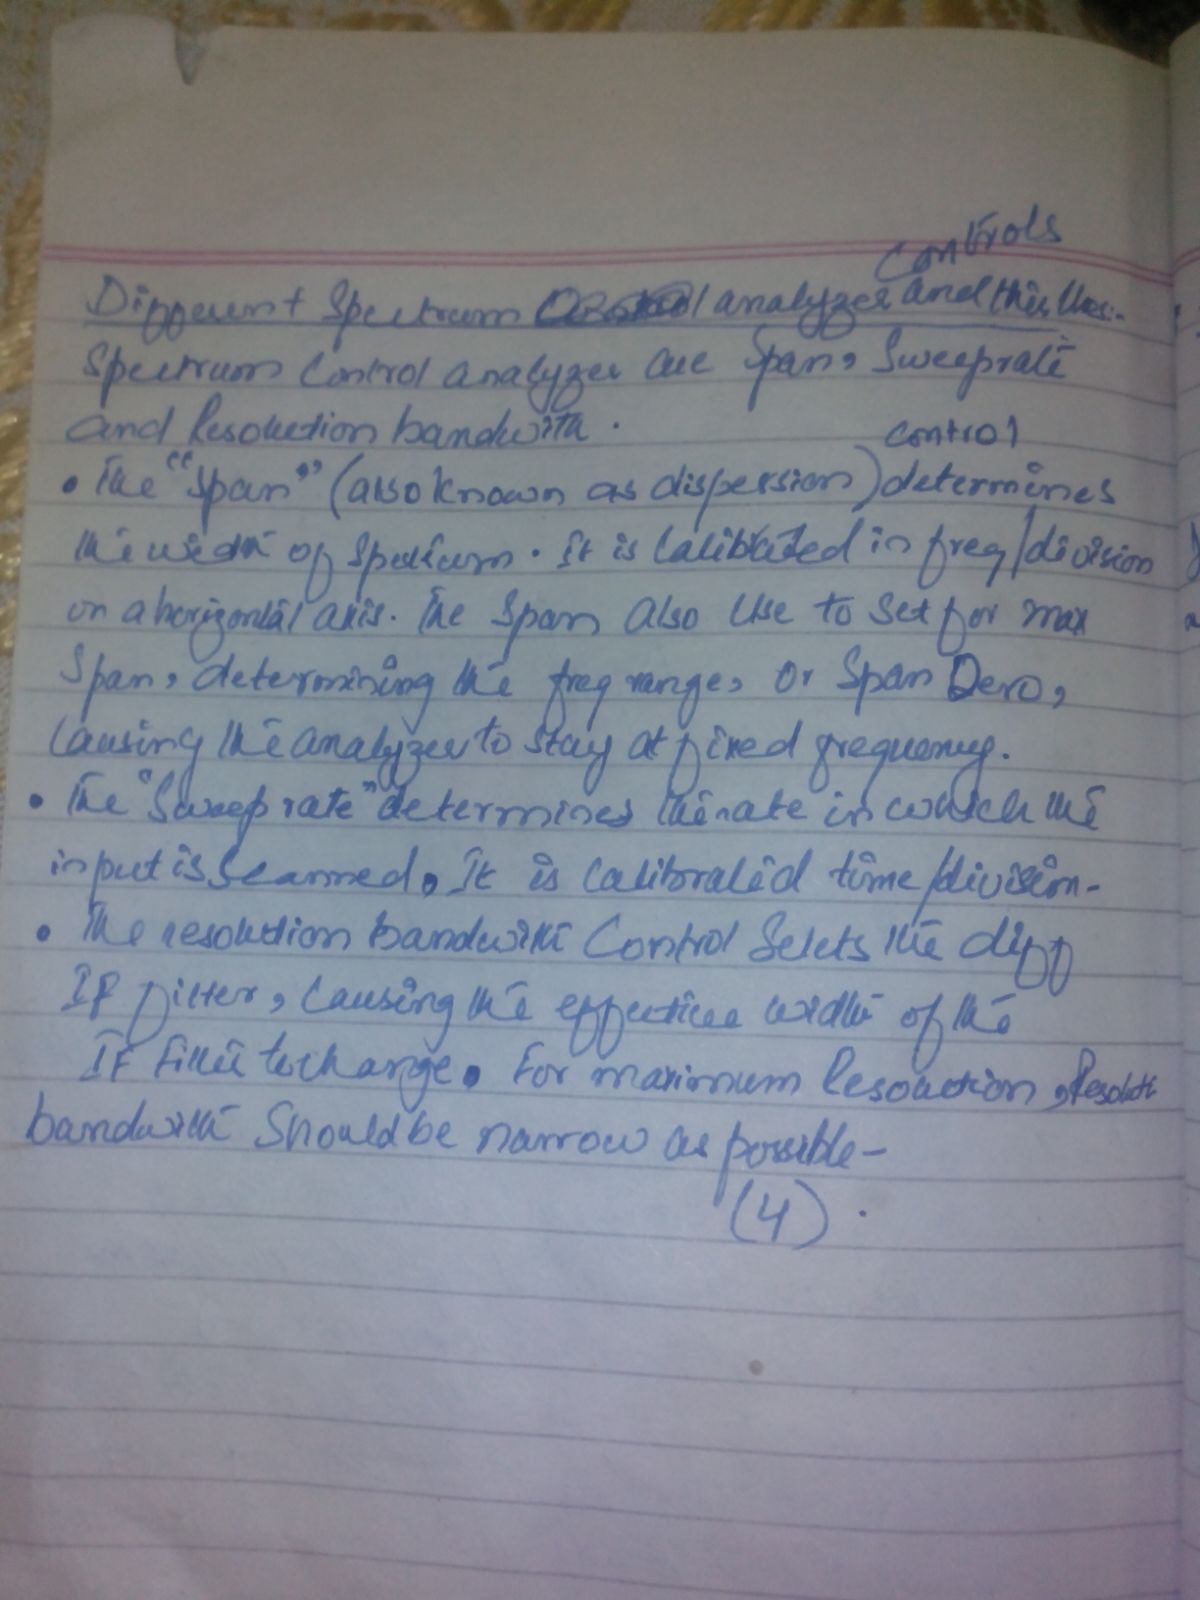 Different Spectrum analyzer controls and their Uses:-
Spectrum Control analyzer are Span, Sweeprate
and Resolution bandwith.
• The "Span" (also known as dispersion) control determines
the width of spectrum. It is calibrated in freq/division
on a horizontal axis. The span also use to set for max
Span, determining the freq range, or Span Dero,
causing the analyzer to stay at fixed frequency.
• The "Sweep rate" determines the rate in which the
input is scanned. It is calibrated time/division-
• The resolution bandwith Control Selets the diff
IF filter, causing the effective width of the
IF filter to change. For maximum Resolution, Resoluti
bandwith Should be narrow as possible-
(4).